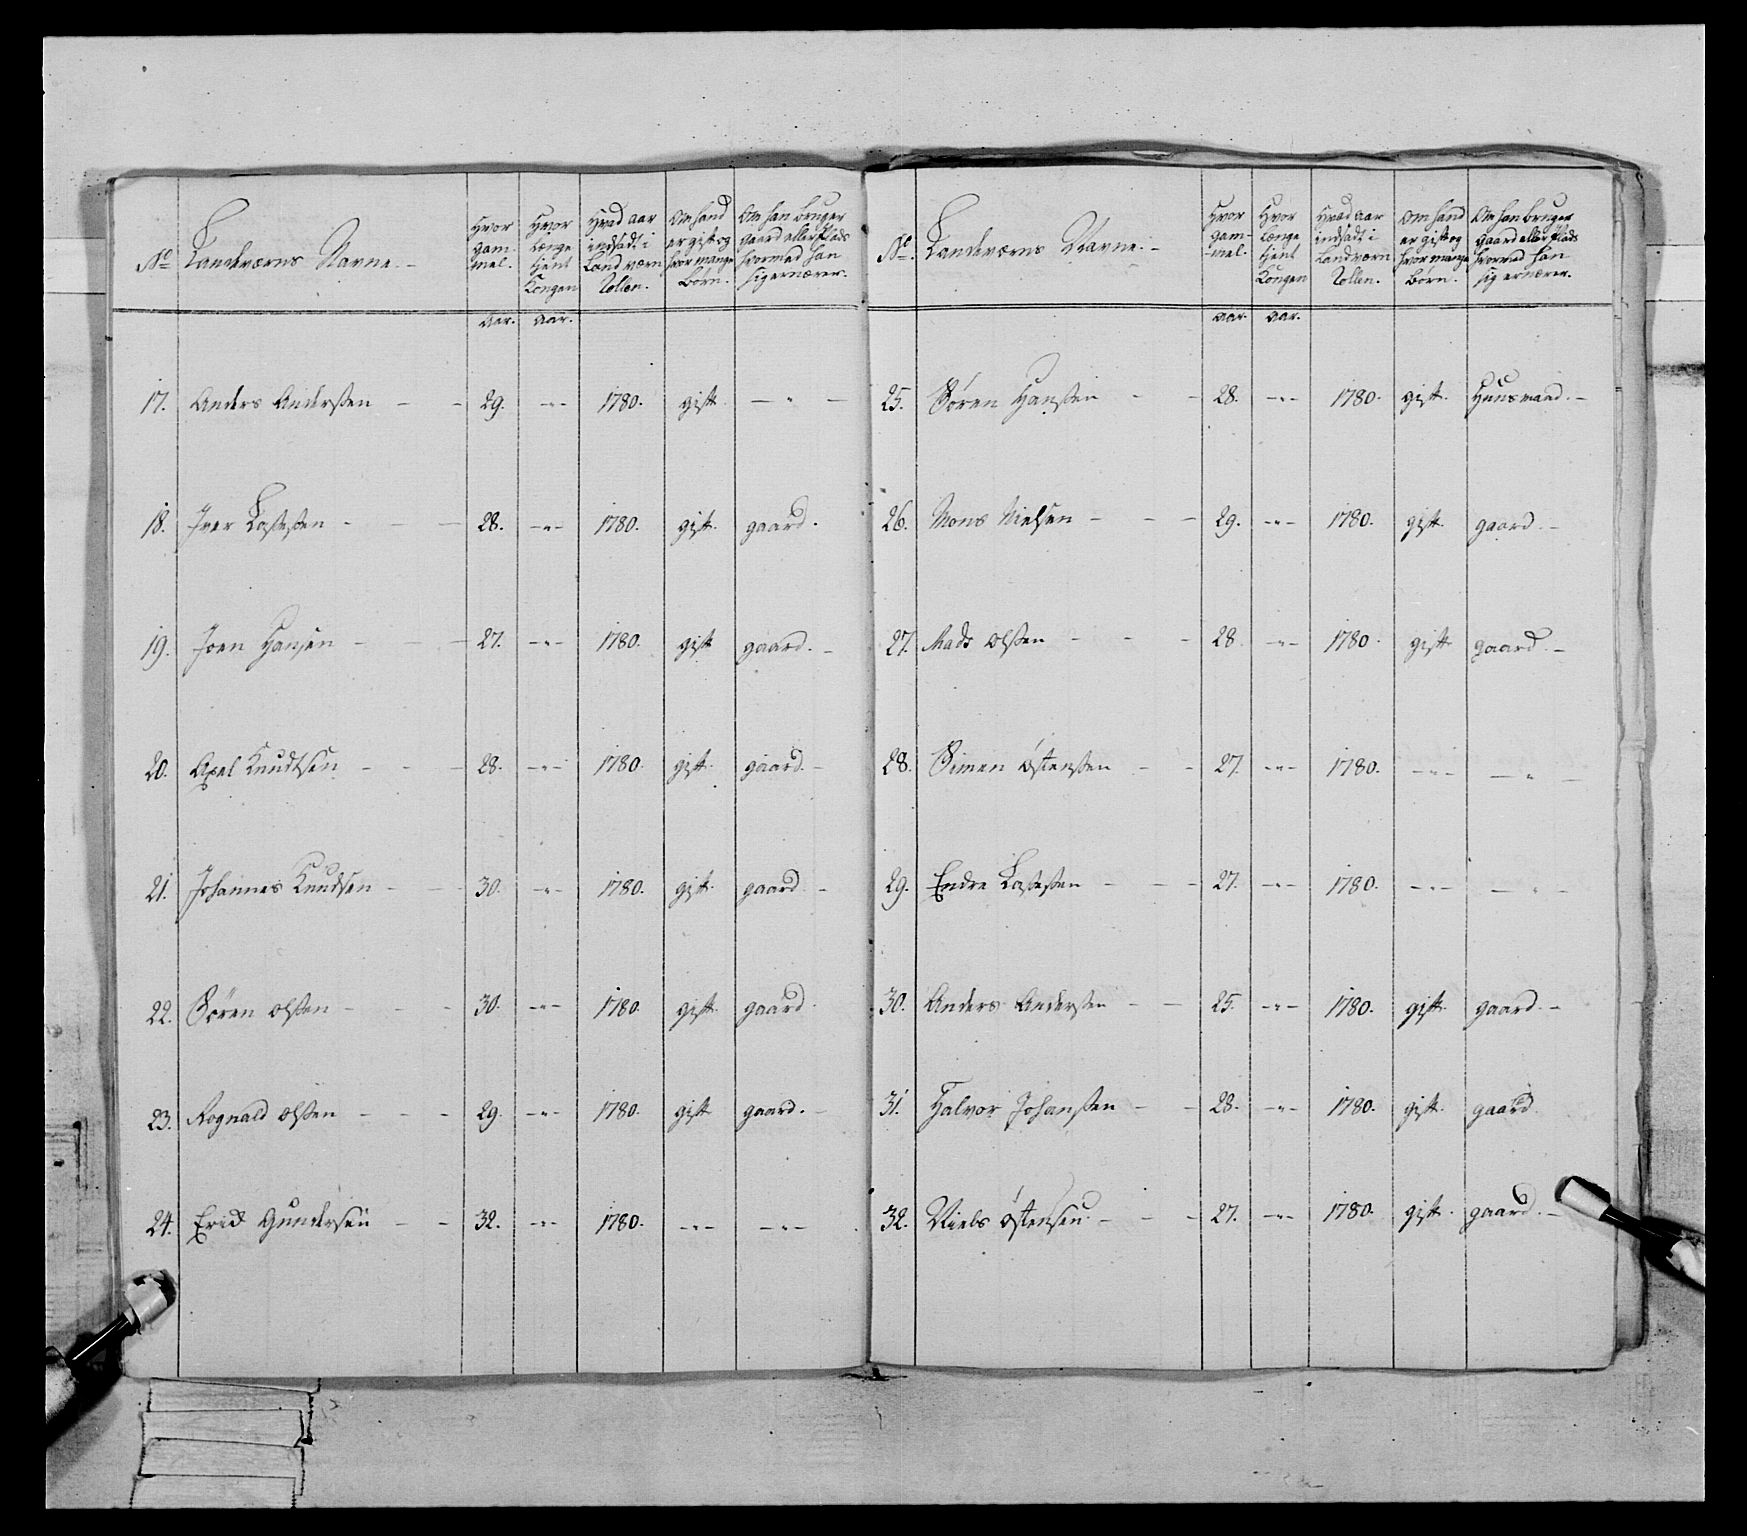 No Landværns Navne. - Hvor gam- mel. Hvor Længe tjent Kongen Hvad aar indsadt i Land værn Rollen. Om hand er gift og hvor mange Børn. Om han bruger Gaard eller Plads hvormed han sig ernærer.
Aar. Aar.
17. Anders Anderssen - - 29. -"- 1780. gift - " -
18. Iver Lassessen - - - 28. -"- 1780. gift. gaard.
19. Joen Hansen - - - 27. -"- 1780. gift gaard. -
20. Axel Knudtsen - - - 28. -"- 1780. gift. gaard. -
21. Johannes Knudsen - - - 30. -"- 1780. gift. gaard -
22. Søren Olssen - - - 30. -"- 1780. gift. gaard.
23. Rognald Olssen - - - 29. -"- 1780. gift gaard. -
24. Erick Gundersen - - 32. -"- 1780. -"- -"-
No. Landværns Navne. - Hvor gam- mel. Hvor Længe tjent Kongen Hvad aar indsadt i Landværn Rollen. Om hand er gift og hvor mange Børn. Om han bruger Gaard eller Plads hvormed han sig ernærer.
Aar. Aar.
25. Søren Hanssen - - 28. -"- 1780. gift. Huusmand. -
26. Mons Nielsen - - - 29. -"- 1780. gift. gaard. -
27. Mads Olssen - - - 28. -"- 1780. gift gaard. -
28. Simen Østenssen - - 27. -"- 1780. -"- - " -
29. Endre Lassessen - - - 27. -"- 1780. -"- - " -
30. Anders Anderssen - - 25. -"- 1780. gift. gaard. -
31. Halvor Johanssen - - 28. -"- 1780. gift. gaard
32. Niels Østensen - - - 27. -"- 1780. gift. gaard. -